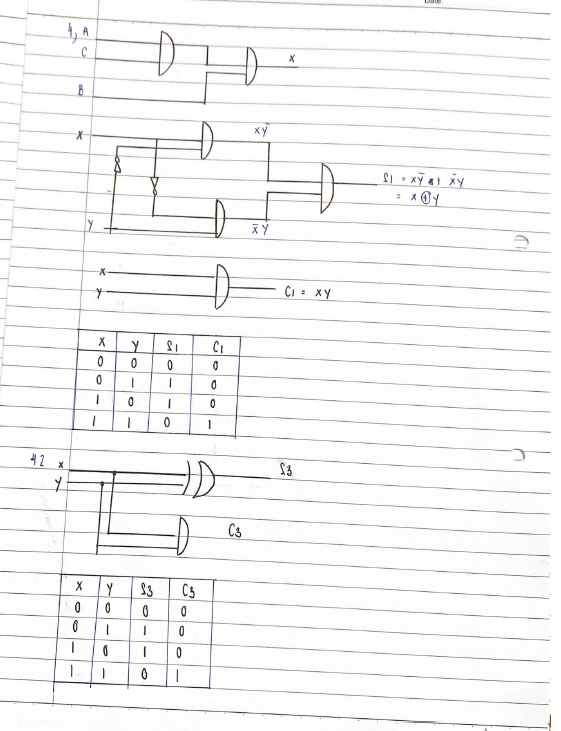 Date
4, A
C
B
X
X
XȲ
Y
X̄Y
S1 = XȲ + X̄Y
= X ⊕ Y
X
Y
C1 = XY
X Y S1 C1
0 0 0 0
0 1 1 0
1 0 1 0
1 1 0 1
42 X
Y
S3
C3
X Y S3 C3
0 0 0 0
0 1 1 0
1 0 1 0
1 1 0 1